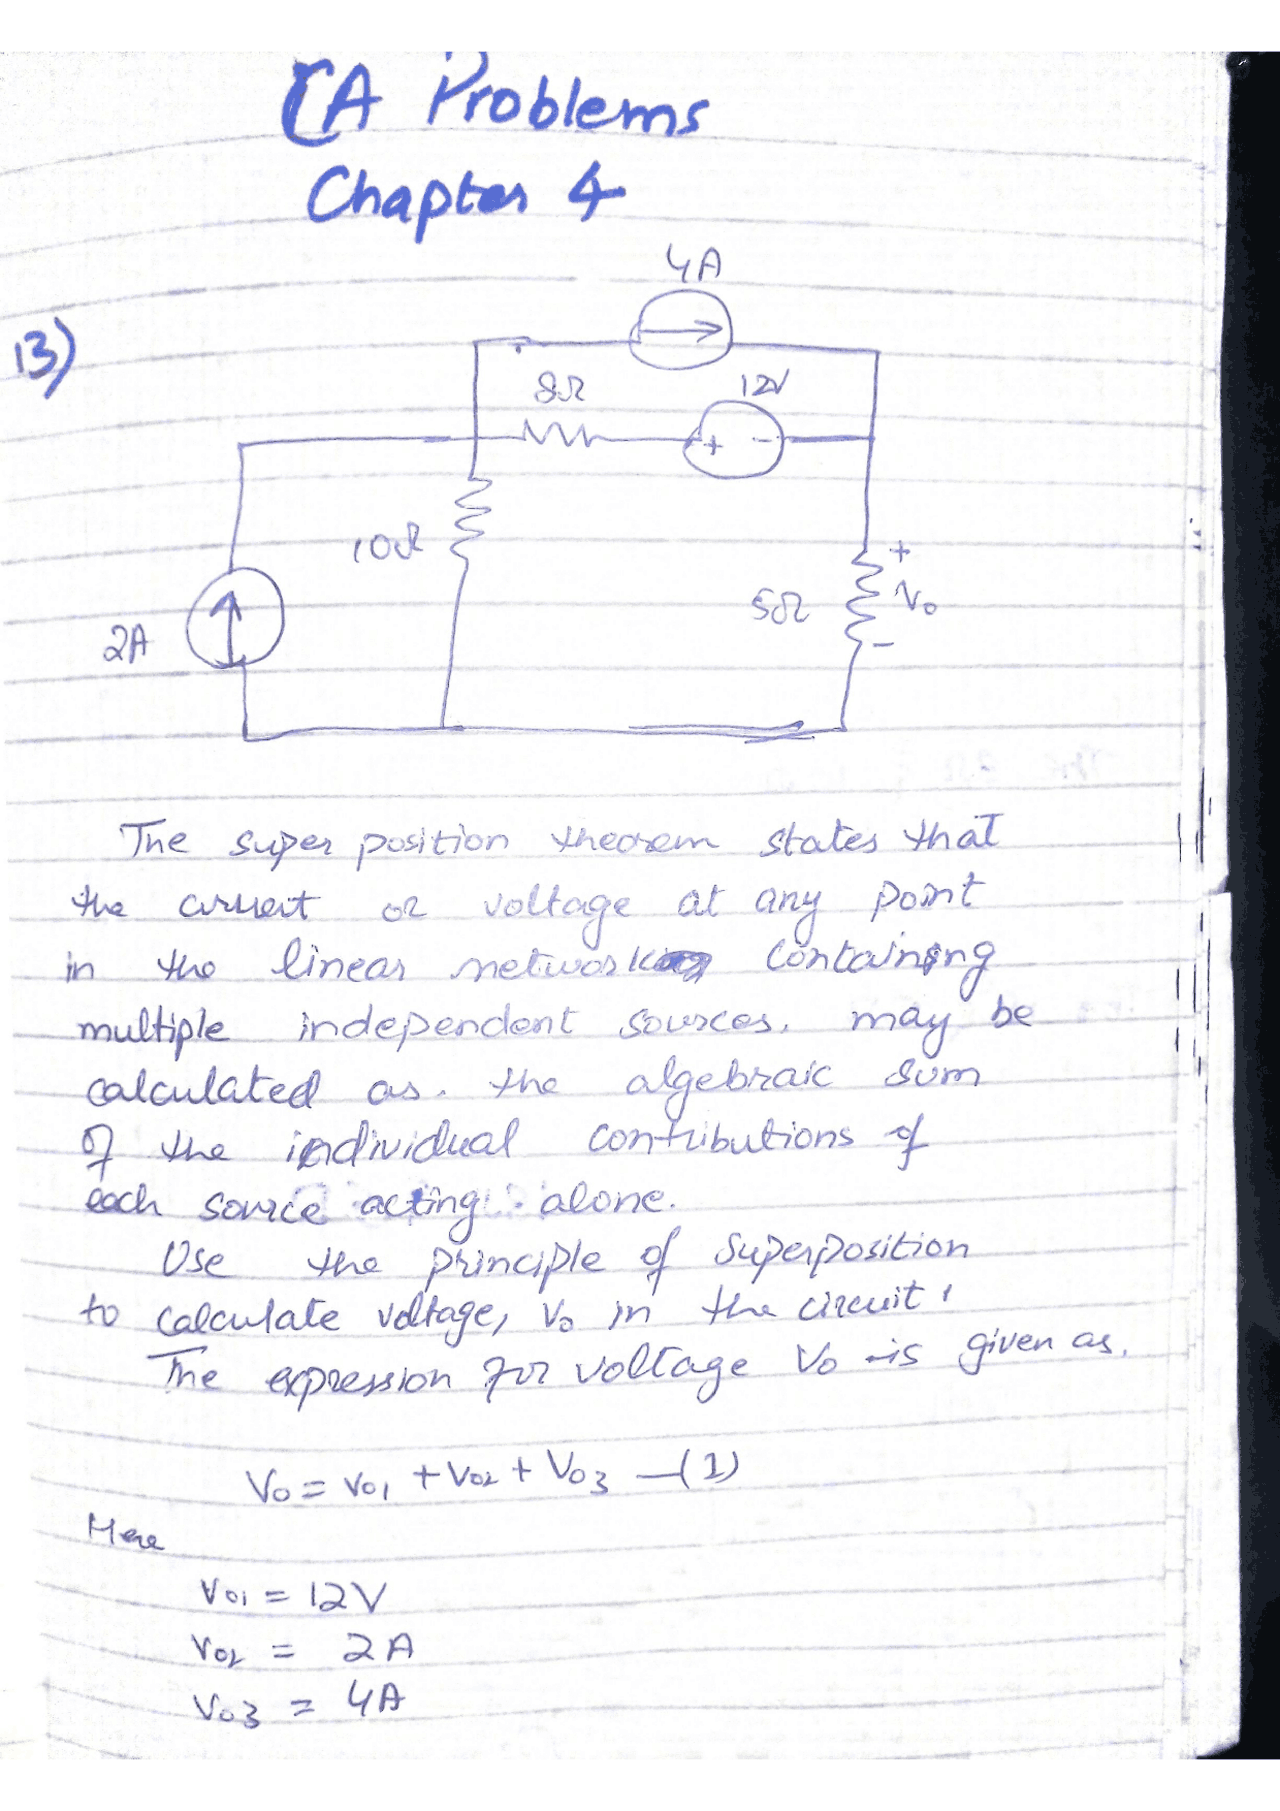 CA Problems
Chapter 4
4A
13)
8Ω
12V
+ -
10Ω
+
5Ω
Vo
-
2A
The super position theorem states that
the current or voltage at any point
in the linear network containing
multiple independent sources. may be
calculated as. the algebraic sum
of the individual contributions of
each source acting alone.
Use the principle of superposition
to calculate voltage, Vo in the circuit.
The expression for voltage Vo is given as.
Vo = Vo1 + Vo2 + Vo3 —(1)
Here
Vo1 = 12V
Vo2 = 2A
Vo3 = 4A